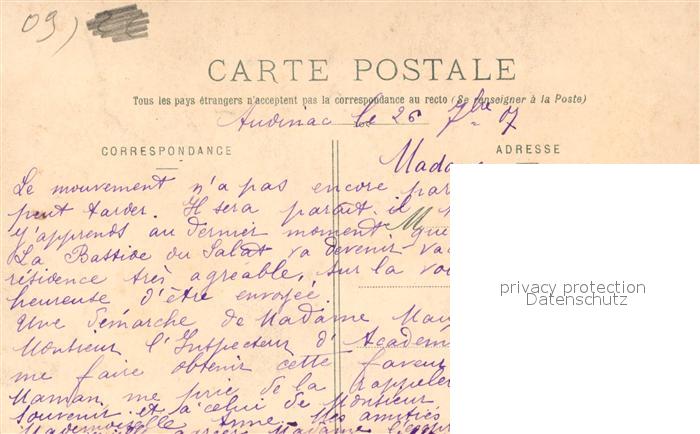 09)
CARTE POSTALE
Tous les pays étrangers n'acceptent pas la correspondance au recto (Se renseigner à la Poste)
Audinac le 26 7bre 07
CORRESPONDANCE
ADRESSE
Madame
Le mouvement n'a pas encore par
peut tarder. Il sera parait il
M
J'apprends au dernier moment que
La Bastide du Salat va devenir va
résidence très agréable, sur la vo
heureuse d'être envoyée.
Une démarche de Madame Mau
Monsieur l'Inspecteur d'Academ
me faire obtenir cette faveur
Maman me prie de la rappeler
souvenir et à celui de Monsieur
Mademoiselle Anne. Mes amitiés
agréer Madame
privacy protection
Datenschutz